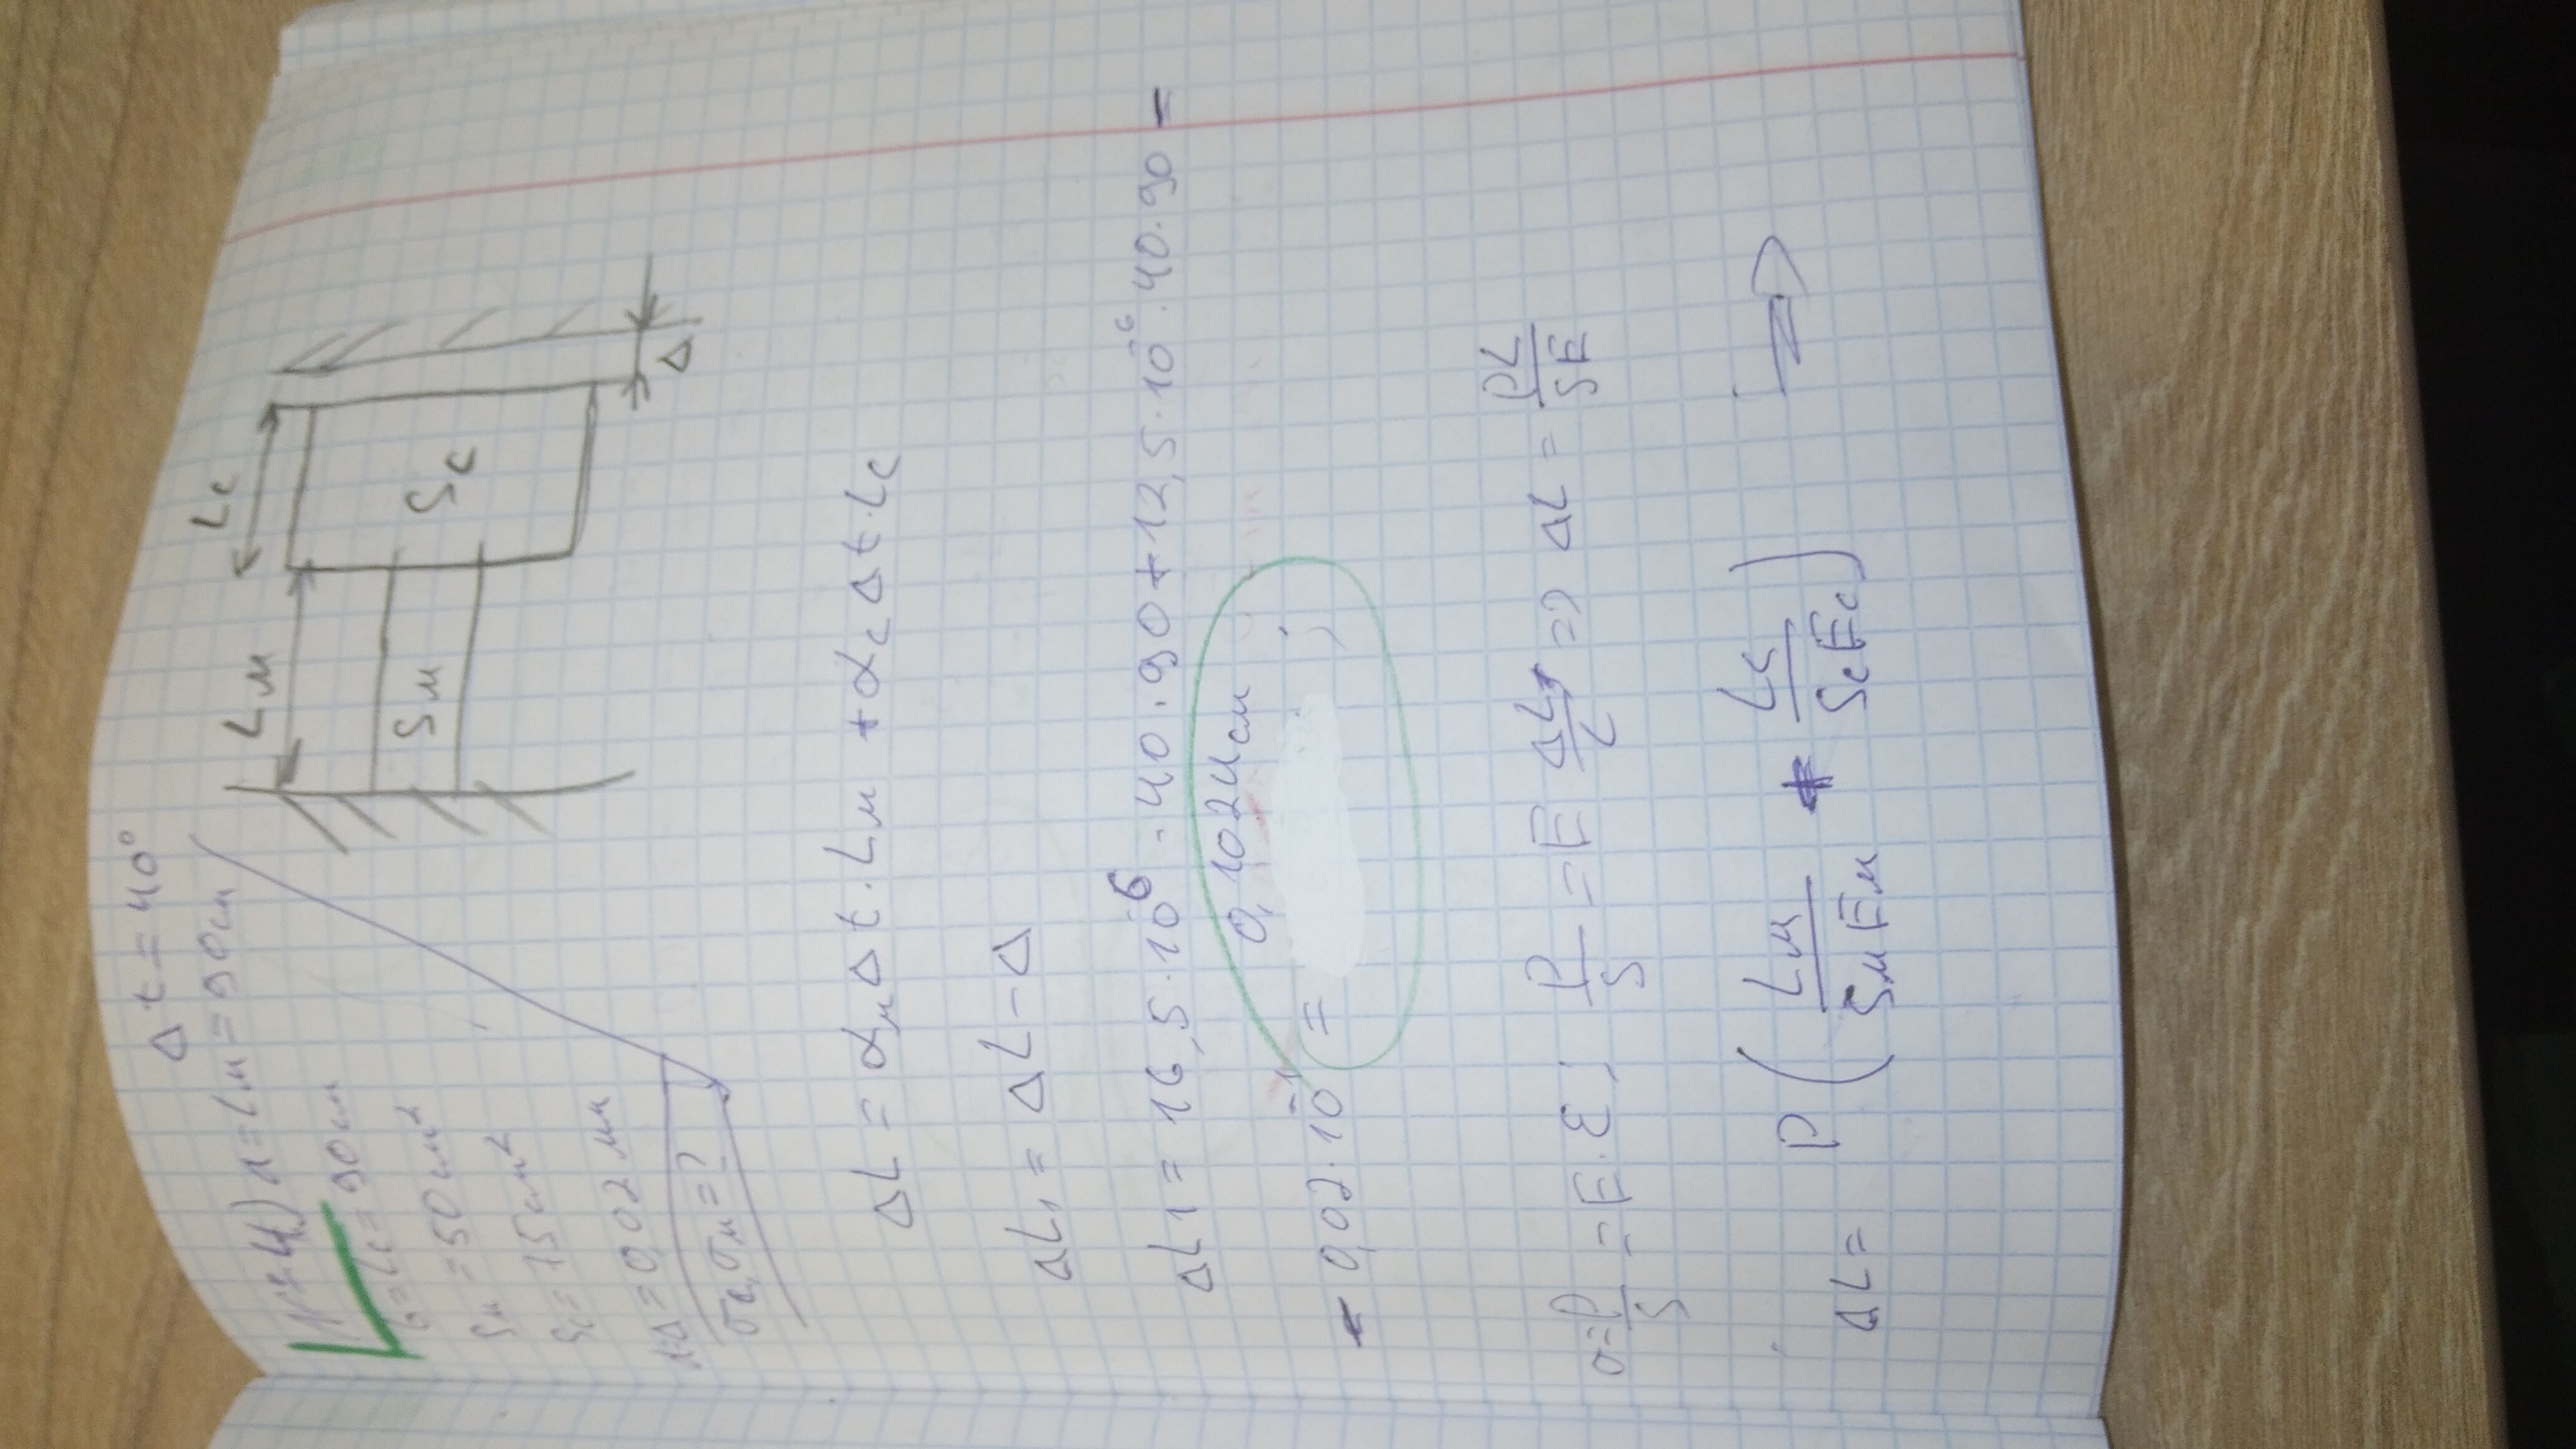 Δt = 40°
№4) a = Lм = 90см
в = Lс = 90см
Sм = 50см²
Sс = 75см²
Δ = 0,02 мм
σс, σм = ?
Lм
Lс
Sм
Sс
Δ
ΔL = αмΔt·Lм + αсΔt·Lс
ΔL₁ = ΔL - Δ
ΔL1 = 16,5·10⁻⁶·40·90+12,5·10⁻⁶·40·90 -
0,1024см
- 0,02·10⁻¹ = ;
σ = P/S = E·ε; P/S = E ΔL/L => ΔL = PL/SE
ΔL = P (Lм/SмEм + Lс/SсEс) ⇒